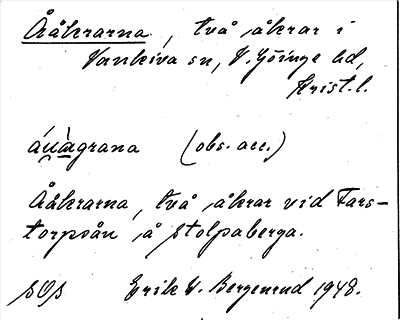 Ååkrarna, två åkrar i
Vankiva sn, V. Göinge hd,
Krist.l.
(obs. acc.)
Ååkrarna, två åkrar vid Fars-
torpsån å Stolpaberga.
SOS Erik W. Bergenrud 1948.